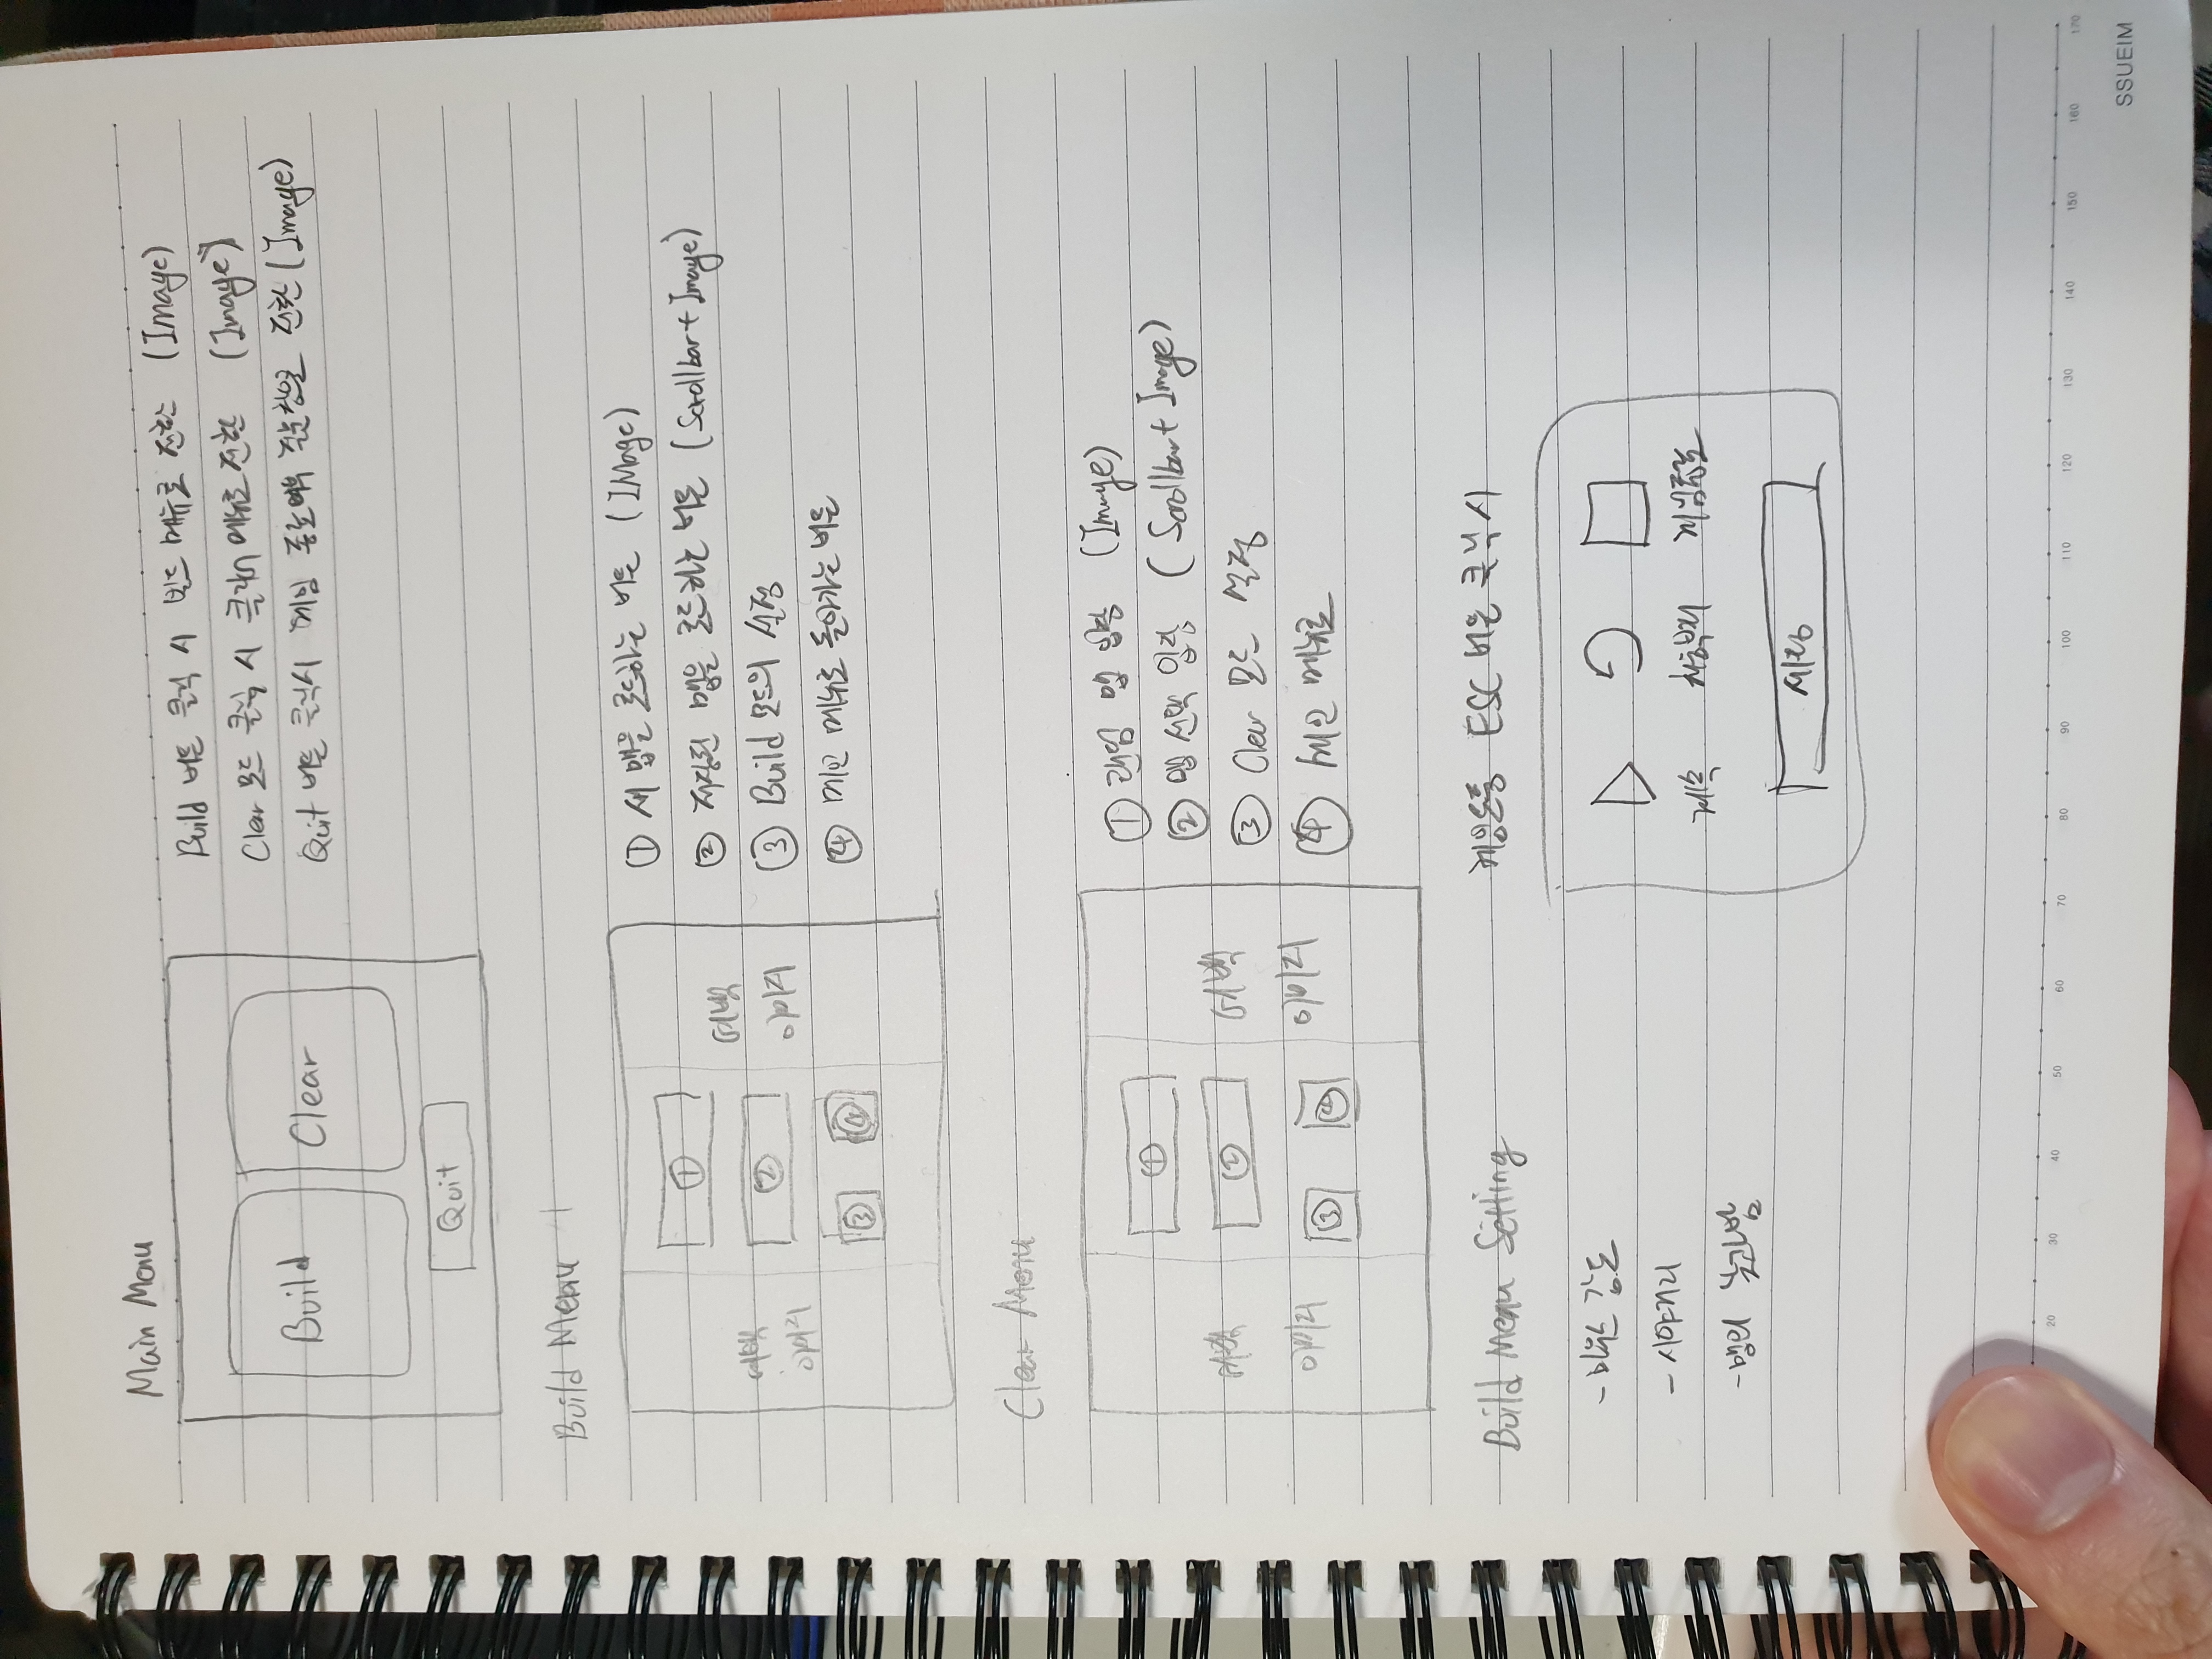 Main Menu
Build
Clear
Quit
Build 버튼 클릭 시 빌드 메뉴로 전환 (Image)
Clear 모드 클릭 시 클리어 메뉴로 전환 (Image)
Quit 버튼 클릭시 게임 종료여부 질문창으로 전환 (Image)
Build Menu
①
②
③ ④
여백
이미지
여백
이미지
① 새 맵을 로드하는 버튼 (IMage)
② 저장된 맵을 로드하는 버튼 (Scrollbar + Image)
③ Build 모드의 설정
④ 메인 메뉴로 돌아가는 버튼
Clear Menu
①
②
③ ④
여백
이미지
여백
이미지
① 랜덤 맵 입장 (Image)
② 맵 선택 입장 (Scrollbar + Image)
③ Clear 모드 설정
④ 메인 메뉴로
Build Menu Setting
- 마우스 감도
- 시야거리
- 맵의 낮과 밤
게임도중 ESC 버튼 클릭 시
계속 처음부터 게임종료
세팅
20 30 40 50 60 70 80 90 100 110 120 130 140 150 160 170
SSUEIM